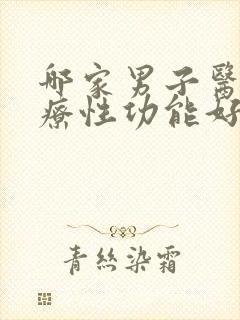 哪家男子醫
療性功能好
青絲染霜